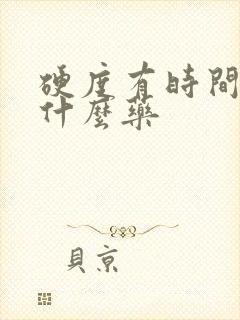 硬度有時間
什麼藥
貝京